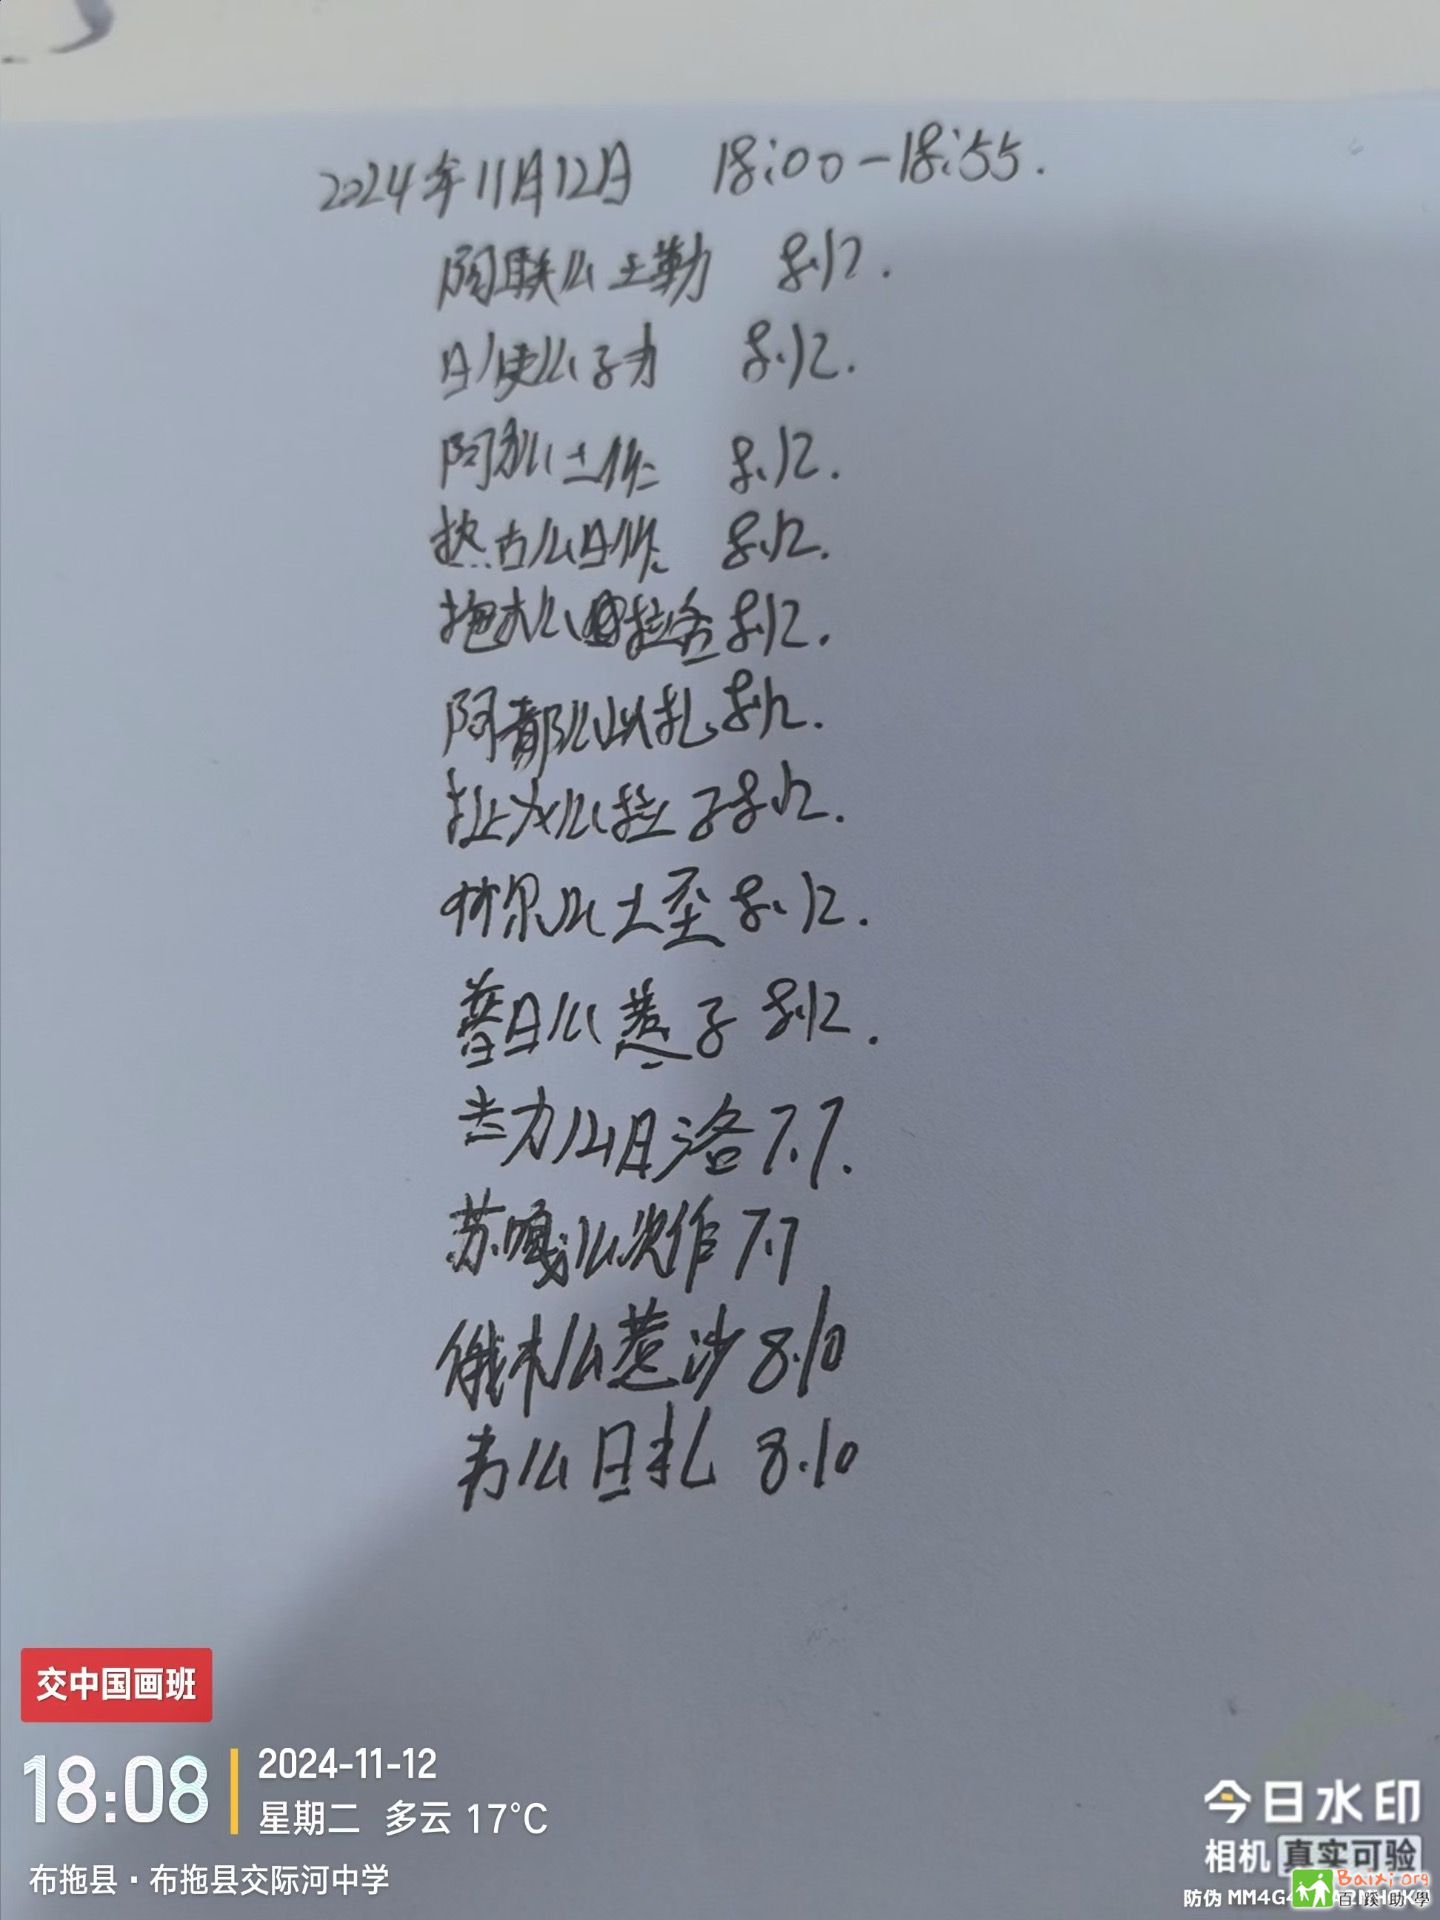 2024年11月12日 18:00-18:55.
阿联么土勒 8.12.
日使么子力 8.12.
阿 么土作 8.12.
热古么日作 8.12.
拖木么 拉各 8.12.
阿都么山扎 8.12.
扯 么拉子 8.12.
尔么土至 8.12.
普日么惹子 8.12.
吉力么日洛 7.7.
苏嘎么次作 7.7
俄木么惹沙 8.10
么日札 8.10
交中国画班
18:08
2024-11-12
星期二 多云 17°C
布拖县·布拖县交际河中学
今日水印
相机 真实可验
防伪 MM4G4
Baixi.org
百蹊助學